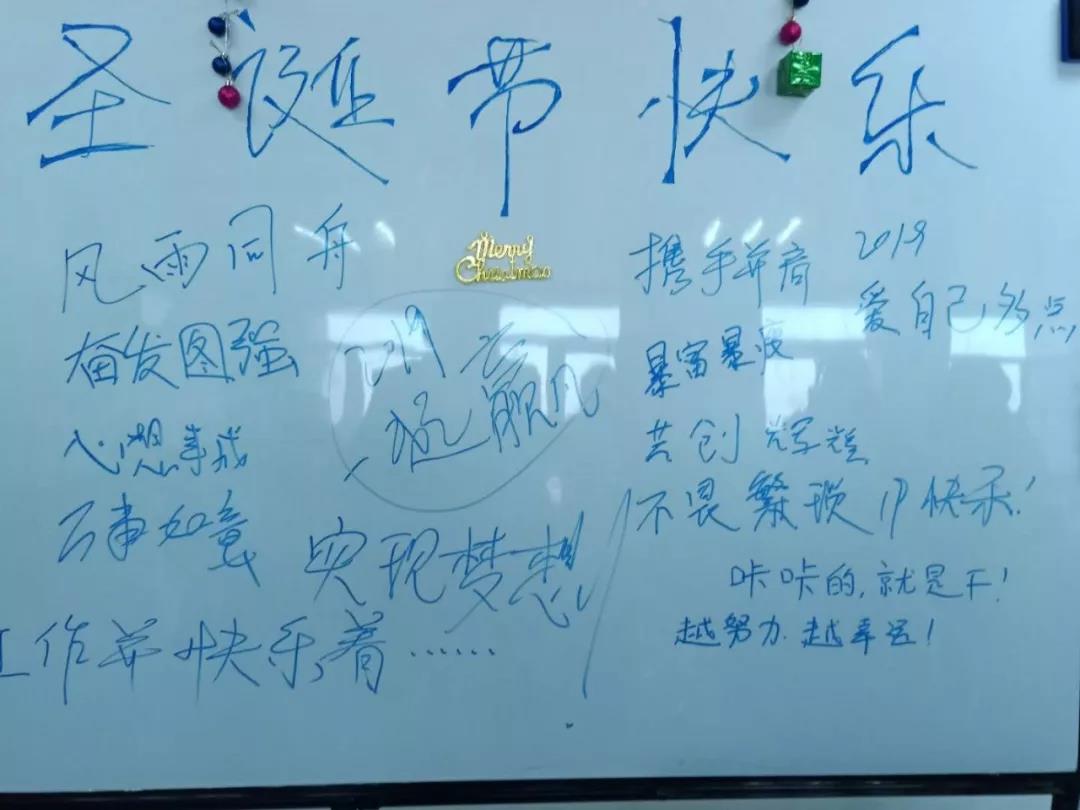 圣诞节快乐
风雨同舟
奋发图强
心想事成
万事如意
实现梦想
工作并快乐着……
Merry
Christmas
携手并肩
暴富暴瘦
共创辉煌
不畏繁琐 快乐!
咔咔的,就是干!
越努力.越幸运!
2019
爱自己多点